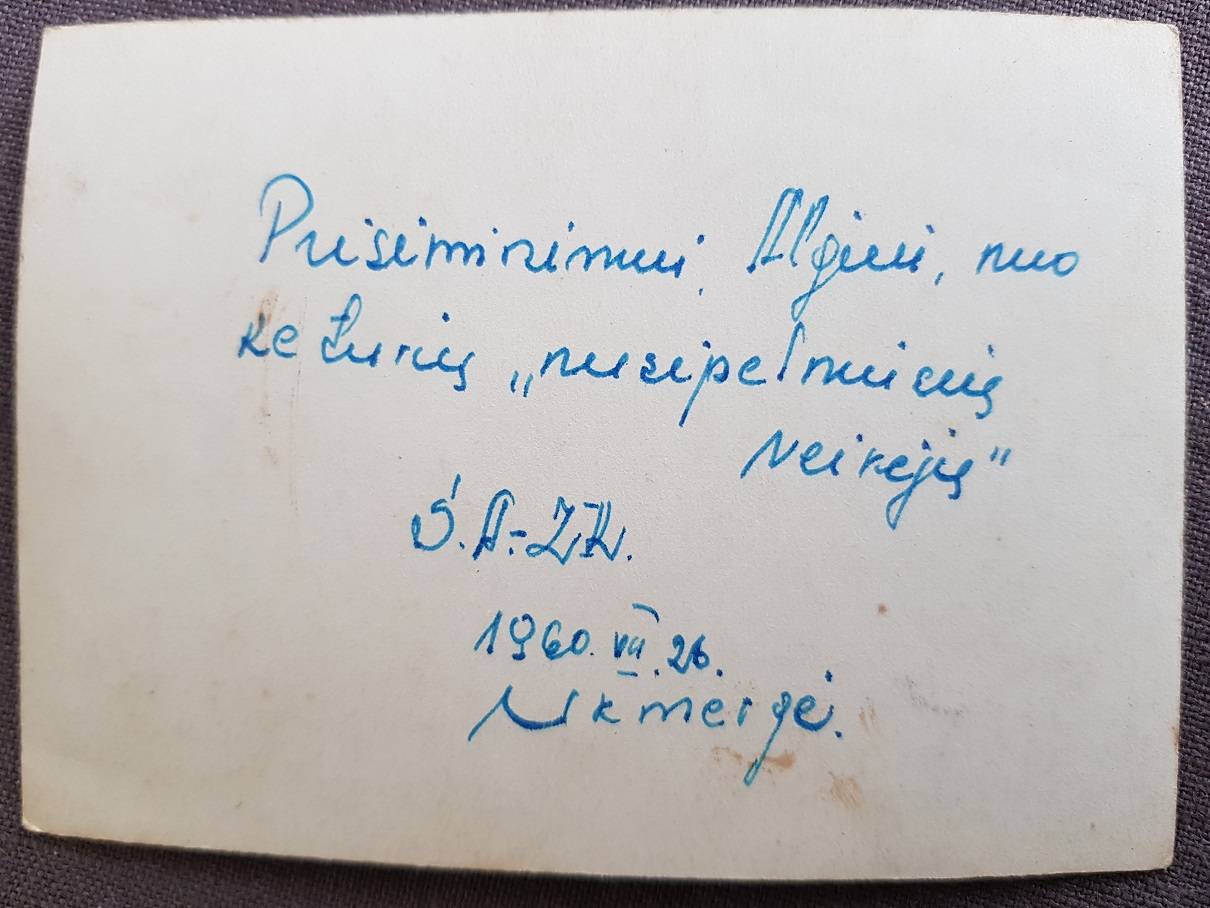 Prisiminimui, Algiui, nuo
keturių „nusipelniusių
veikėjų"
Š.A.-Z.K.
1960.VII.26.
Ukmergė.